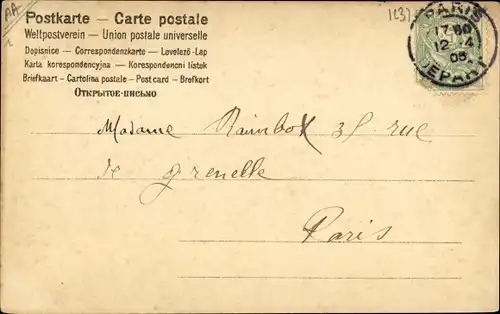 AA
123
Postkarte — Carte postale
Weltpostverein — Union postale universelle
Dopisnice — Correspondenzkarte — Levelező-Lap
Karta korespondencyjna — Korespondencni lístek
Briefkaart — Cartolina postale — Post card — Brefkort
Открытое-письмо
PARIS
17 60
12 -4
05
DEPART
Madame Raimbox 35 rue
de grenelle
Paris